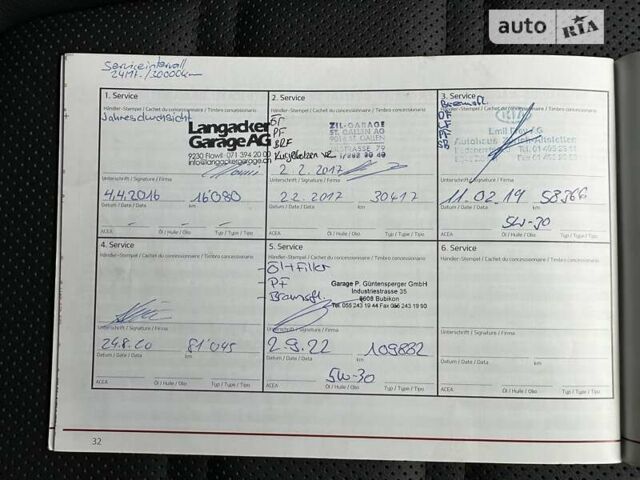 auto RIA
Serviceintervall
24Mt./30000km
1. Service
Händler-Stempel / Cachet du concessionnaire / Timbro concessionario
Jahresdurchsicht
Langacker
Garage AG
9230 Flawil 071 394 20 00
info@langackergarage.ch
Unterschrift / Signature / Firma
4.4.2016 16'080
Datum / Date / Data km
- - -
ACEA Öl / Huile / Olio Typ / Type / Tipo
2. Service
Händler-Stempel / Cachet du concessionnaire / Timbro concessionario
ÖF
PF
BRF
ZIL-GARAGE
ST. GALLEN AG
9016 ST. GALLEN
2.2.2017
Unterschrift / Signature / Firma
2.2.2017 30417
Datum / Date / Data km
ACEA Öl / Huile / Olio Typ / Type / Tipo
3. Service
Händler-Stempel / Cachet du concessionnaire / Timbro concessionario
Bremsfl.
ÖF
PF
Emil Frey AG
Autohaus
Unterschrift / Signature / Firma
11.02.19 58366
Datum / Date / Data km
5W-30
ACEA Öl / Huile / Olio Typ / Type / Tipo
4. Service
Händler-Stempel / Cachet du concessionnaire / Timbro concessionario
Unterschrift / Signature / Firma
24.8.20 81'045
Datum / Date / Data km
ACEA Öl / Huile / Olio Typ / Type / Tipo
5. Service
Händler-Stempel / Cachet du concessionnaire / Timbro concessionario
- Öl+Filter
- PF
- Bremsfl.
Garage P. Güntensperger GmbH
Industriestrasse 35
8608 Bubikon
Tel. 055 243 19 44 Fax 055 243 19 90
Unterschrift / Signature / Firma
2.9.22 109882
Datum / Date / Data km
5W-30
ACEA Öl / Huile / Olio Typ / Type / Tipo
6. Service
Händler-Stempel / Cachet du concessionnaire / Timbro concessionario
Unterschrift / Signature / Firma
Datum / Date / Data km
ACEA Öl / Huile / Olio Typ / Type / Tipo
32